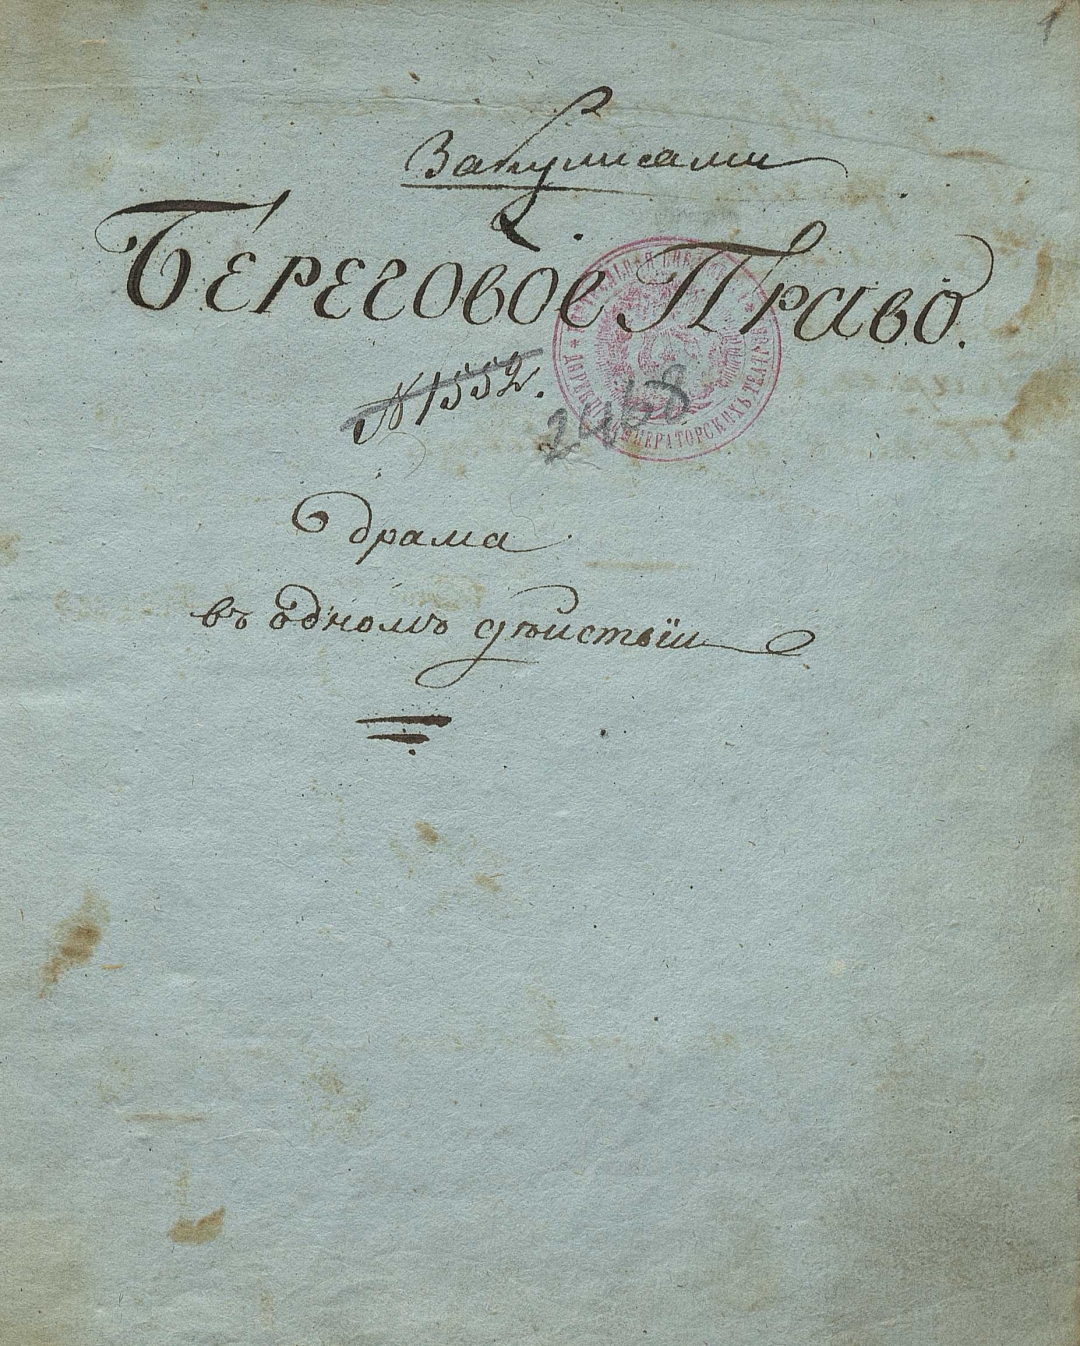 1
Закулисами
Береговое Право.
№ 1552.
2468
драма
въ одномъ дѣйствіи
ДИРЕКЦІИ ИМПЕРАТОРСКИХЪ ТЕАТРОВЪ